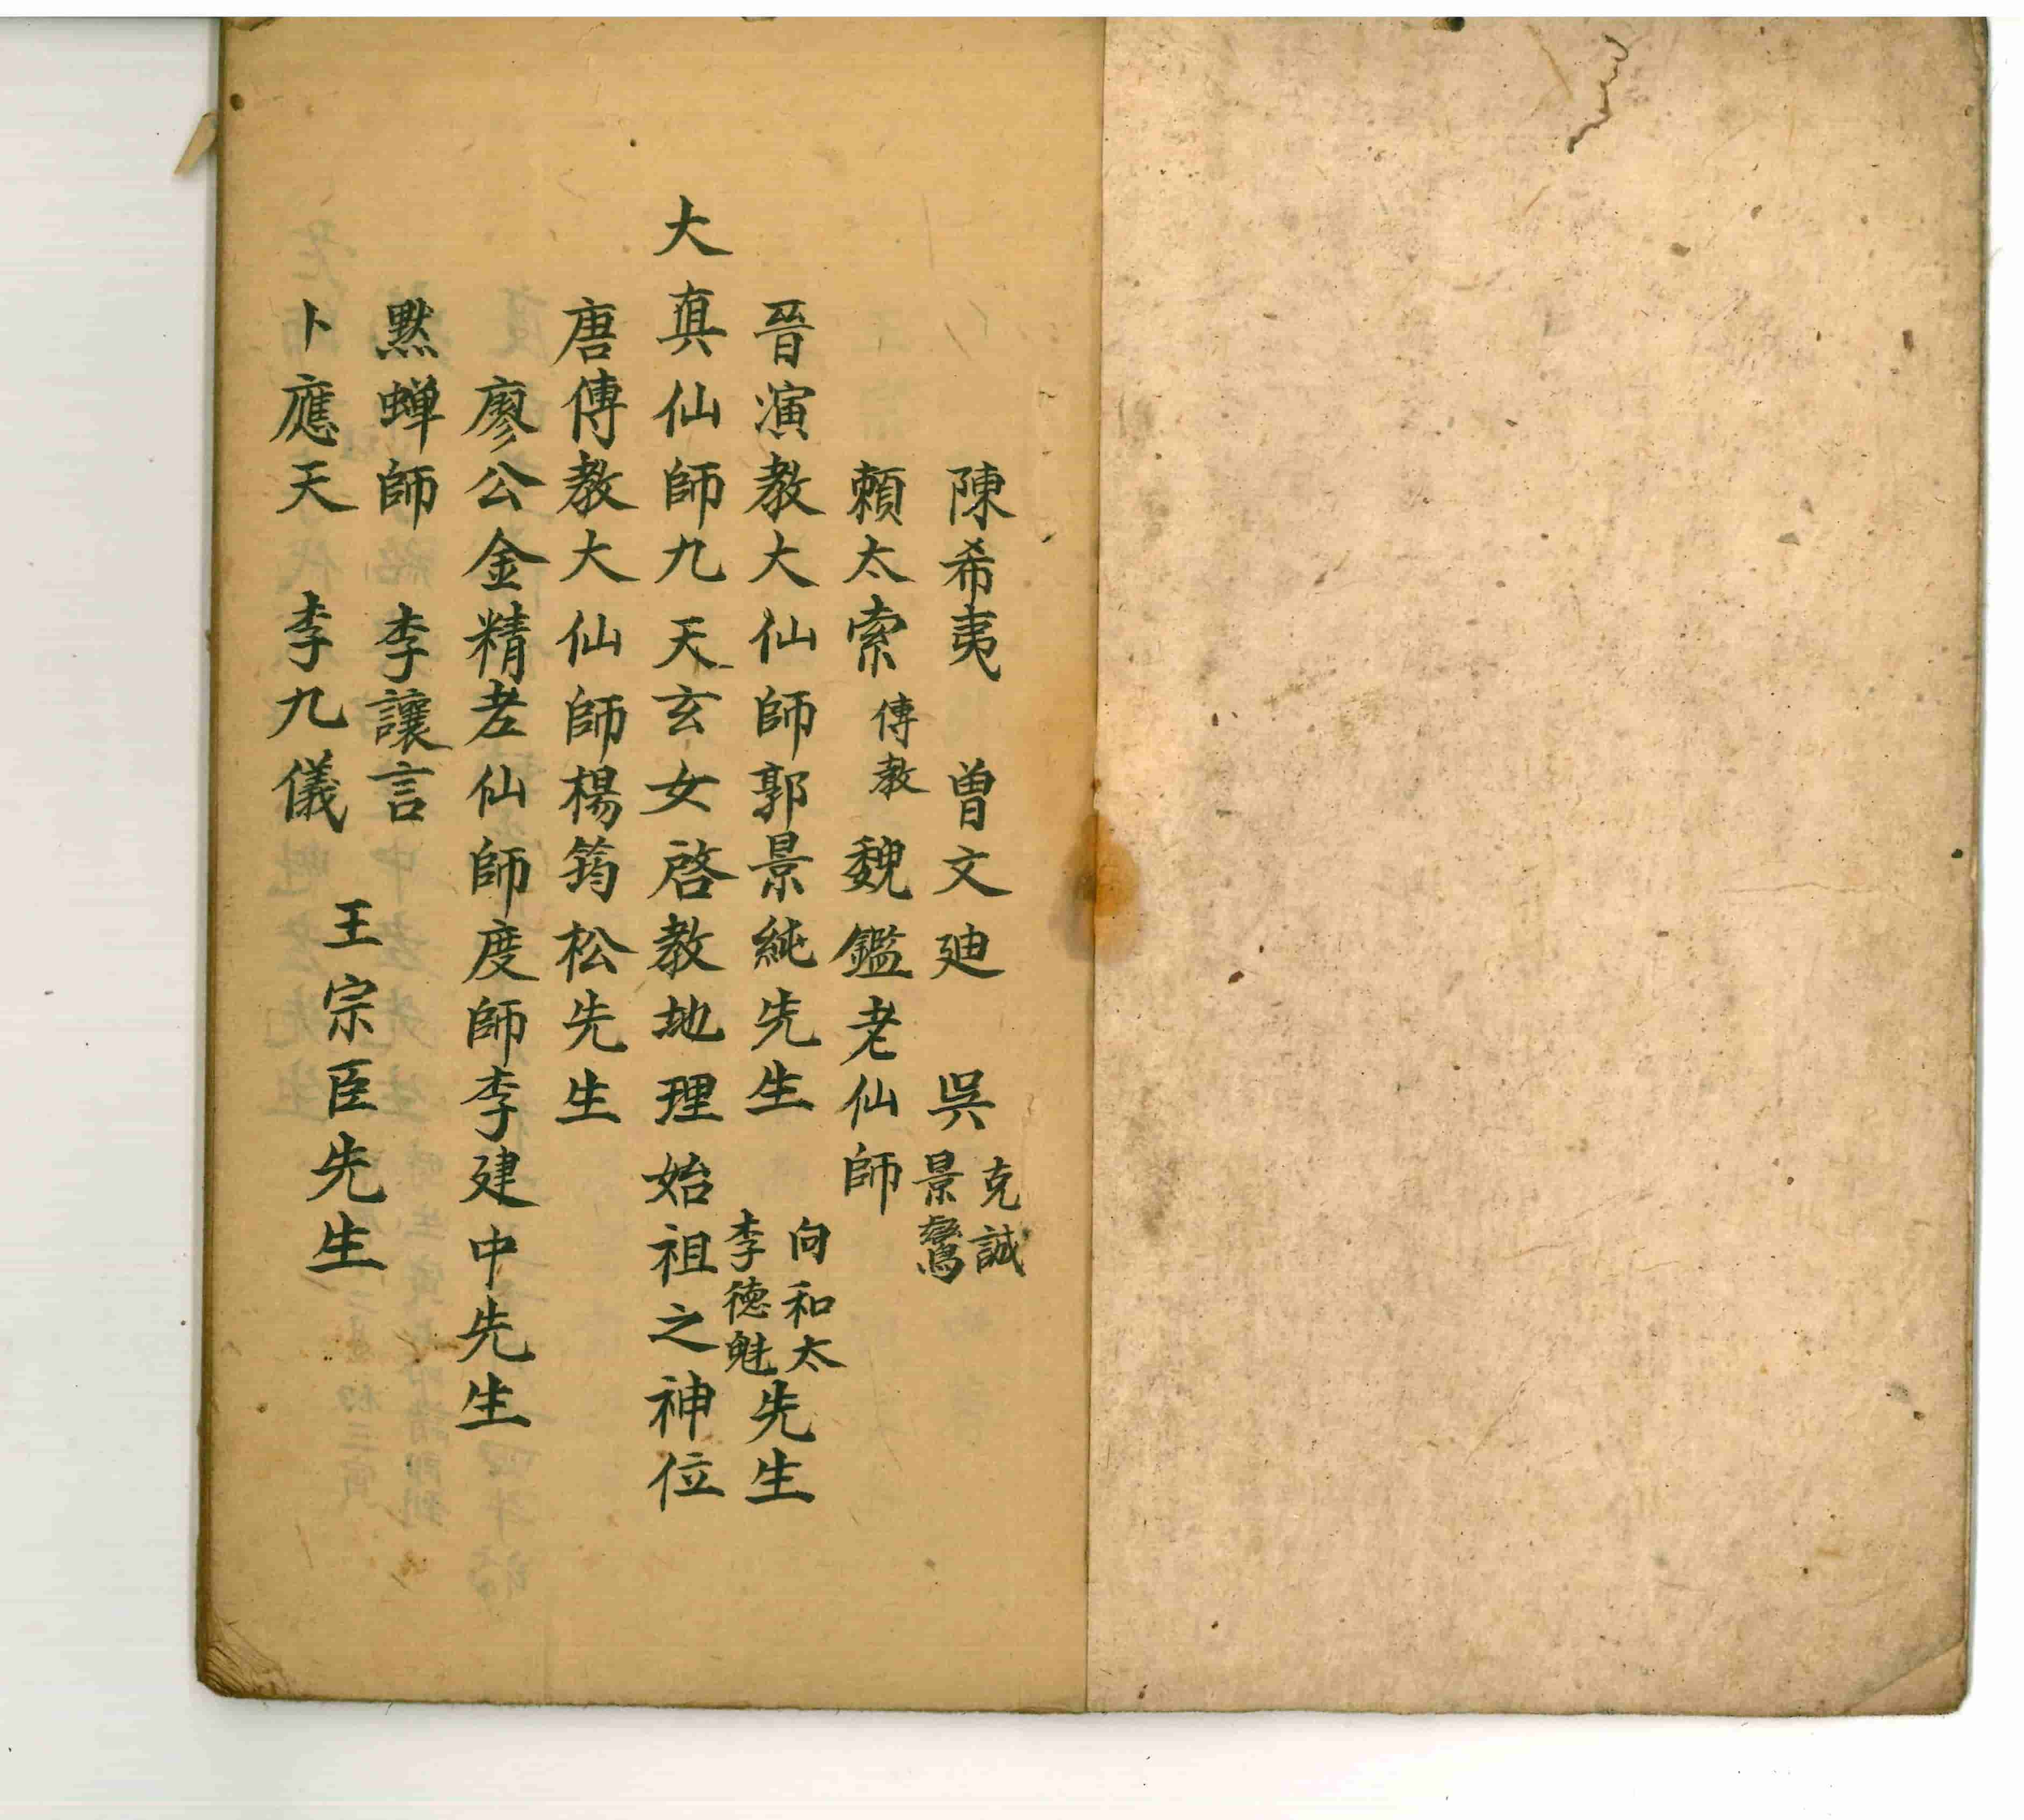 陳希夷　曾文廸　吳克誠景鸞
賴太索傳教魏鑑老仙師
晉演教大仙師郭景純先生　向和太李德魁先生
大真仙師九天玄女啓教地理始祖之神位
唐傳教大仙師楊筠松先生
廖公金精老仙師度師李建中先生
默蟬師　李讓言
卜應天　李九儀
王宗臣先生